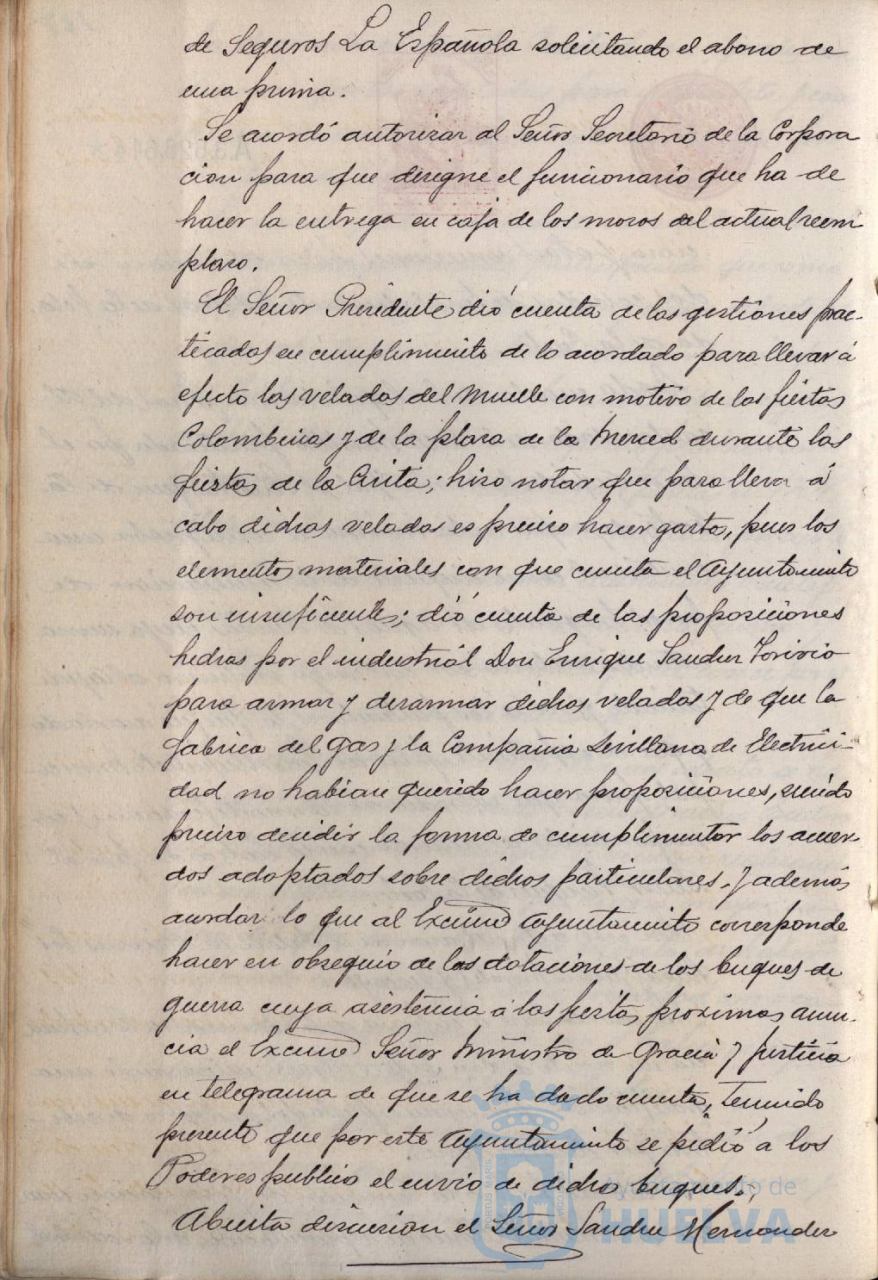 de Seguros La Española solicitando el abono de
una prima.
Se acordó autorizar al Señor Secretario de la Corpora
cion para que designe el funcionario que ha de
hacer la entrega en caja de los mozos del actual reem
plazo.
El Señor Presidente dió cuenta de las gestiones prac-
ticadas en cumplimiento de lo acordado para llevar á
efecto las veladas del Muelle con motivo de las fiestas
Colombinas y de la plaza de la Merced durante las
fiestas de la Cinta; hizo notar que para lleva á
cabo dichas veladas es preciso hacer gastos, pues los
elementos materiales con que cuenta el Ayuntamiento
son insuficientes; dió cuenta de las proposiciones
hechas por el industrial Don Enrique Sanchez Torivio
para armar y desarmar dichas veladas y de que la
fabrica del gas y la Compañia Sevillana de Electrici-
dad no habian querido hacer proposiciones, siendo
preciso decidir la forma de cumplimentar los acuer-
dos adoptados sobre dichos particulares, y además
acordar lo que al Excmo Ayuntamiento corresponde
hacer en obsequio de las dotaciones de los buques de
guerra cuya asistencia á las fiestas proximas anun-
cia el Excmo Señor Ministro de Gracia y Justicia
en telegrama de que se ha dado cuenta, teniendo
presente que por este Ayuntamiento se pidió á los
Poderes publicos el envio de dichos buques.
Abierta discusion el Señor Sanchez Hernandez
Ayuntamiento de
HUELVA